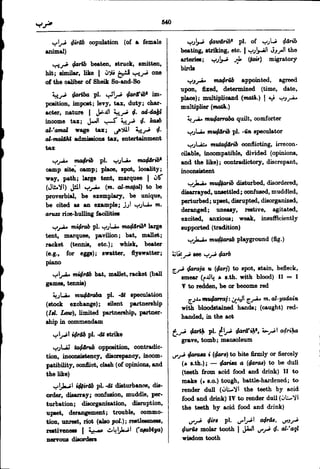 ضرب
540
ضراب ḍirāb copulation (of a female
animal)
ضريب ḍarīb beaten, struck, smitten,
hit; similar, like | ضريب الشول one
of the caliber of Sheik So-and-So
ضريبة ḍarība pl. ضرائب ḍarā'ib² im-
position, impost; levy, tax, duty; char-
acter, nature | ضريبة الدخل ḍ. ad-daḵl
income tax; ḍ. kasb
al-'amal wage tax; ضريبة الملاهي ḍ.
al-malāhī admissions tax, entertainment
tax
مضرب maḍrib pl. مضارب maḍārib²
camp site, camp; place, spot, locality;
way, path; large tent, marquee | كان
مضرب المثل (m. al-maṯal) to be
proverbial, be exemplary, be unique,
be cited as an example; مضرب ارز m.
aruzz rice-hulling facilities
مضرب miḍrab pl. مضارب maḍārib² large
tent, marquee, pavilion; bat, mallet;
racket (tennis, etc.); whisk, beater
(e.g., for eggs); swatter, flyswatter;
piano
مضراب miḍrāb bat, mallet, racket (ball
games, tennis)
مضاربة muḍāraba pl. -āt speculation
(stock exchange); silent partnership
(Isl. Law), limited partnership, partner-
ship in commendam
اضراب iḍrāb pl. -āt strike
تضارب taḍārub opposition, contradic-
tion, inconsistency, discrepancy, incom-
patibility, conflict, clash (of opinions, and
the like)
اضطراب iḍṭirāb pl. -āt disturbance, dis-
order, disarray; confusion, muddle, per-
turbation; disorganization, disruption,
upset, derangement; trouble, commo-
tion, unrest, riot (also pol.); restlessness,
restiveness | اضطرابات عصبية ('aṣabīya)
nervous disorders
ضوارب ḍawārib² pl. of ضارب ḍārib
beating, striking, etc. | الضوارب the
arteries; طير ضوارب (ṭair) migratory
birds
مضروب maḍrūb appointed, agreed
upon, fixed, determined (time, date,
place); multiplicand (math.) | مضروب فيه
multiplier (math.)
مضربة muḍarraba quilt, comforter
مضارب muḍārib pl. -ūn speculator
متضارب mutaḍārib conflicting, irrecon-
cilable, incompatible, divided (opinions,
and the like); contradictory, discrepant,
inconsistent
مضطرب muḍṭarib disturbed, disordered,
disarrayed, unsettled; confused, muddled,
perturbed; upset, disrupted, disorganized,
deranged; uneasy, restive, agitated,
excited, anxious; weak, insufficiently
supported (tradition)
مضطرب muḍṭarab playground (fig.)
ضرب see ضربخانة
ضرج ḍaraja u (ḍarj) to spot, stain, befleck,
smear (ه ب s.th. with blood) II = I
V to redden, be or become red
مضرج اليدين muḍarraj al-yadain
with bloodstained hands; (caught) red-
handed, in the act
ضريح ḍarīḥ pl. ضرائح ḍarā'iḥ², اضرحة aḍriḥa
grave, tomb; mausoleum
ضرس ḍarasa i (ḍars) to bite firmly or fiercely
(ه s.th.); — ḍarisa a (ḍaras) to be dull
(teeth from acid food and drink) II to
make (ه s.o.) tough, battle-hardened; to
render dull (الاسنان the teeth by acid
food and drink) IV to render dull (الاسنان
the teeth by acid food and drink)
ضرس ḍirs pl. اضراس aḍrās, ضروس
ḍurūs molar tooth | ضرس العقل ḍ. al-'aql
wisdom tooth